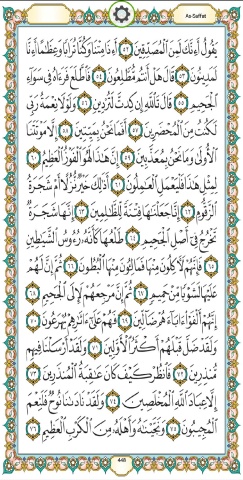 As-Saffat
يَقُولُ أَءِنَّكَ لَمِنَ ٱلْمُصَدِّقِينَ ٥٢ أَءِذَا مِتْنَا وَكُنَّا تُرَابًا وَعِظَٰمًا أَءِنَّا
لَمَدِينُونَ ٥٣ قَالَ هَلْ أَنتُم مُّطَّلِعُونَ ٥٤ فَٱطَّلَعَ فَرَءَاهُ فِى سَوَآءِ
ٱلْجَحِيمِ ٥٥ قَالَ تَٱللَّهِ إِن كِدتَّ لَتُرْدِينِ ٥٦ وَلَوْلَا نِعْمَةُ رَبِّى
لَكُنتُ مِنَ ٱلْمُحْضَرِينَ ٥٧ أَفَمَا نَحْنُ بِمَيِّتِينَ ٥٨ إِلَّا مَوْتَتَنَا
ٱلْأُولَىٰ وَمَا نَحْنُ بِمُعَذَّبِينَ ٥٩ إِنَّ هَٰذَا لَهُوَ ٱلْفَوْزُ ٱلْعَظِيمُ ٦٠
لِمِثْلِ هَٰذَا فَلْيَعْمَلِ ٱلْعَٰمِلُونَ ٦١ أَذَٰلِكَ خَيْرٌ نُّزُلًا أَمْ شَجَرَةُ
ٱلزَّقُّومِ ٦٢ إِنَّا جَعَلْنَٰهَا فِتْنَةً لِّلظَّٰلِمِينَ ٦٣ إِنَّهَا شَجَرَةٌ
تَخْرُجُ فِىٓ أَصْلِ ٱلْجَحِيمِ ٦٤ طَلْعُهَا كَأَنَّهُۥ رُءُوسُ ٱلشَّيَٰطِينِ
٦٥ فَإِنَّهُمْ لَءَاكِلُونَ مِنْهَا فَمَالِـُٔونَ مِنْهَا ٱلْبُطُونَ ٦٦ ثُمَّ إِنَّ لَهُمْ
عَلَيْهَا لَشَوْبًا مِّنْ حَمِيمٍ ٦٧ ثُمَّ إِنَّ مَرْجِعَهُمْ لَإِلَى ٱلْجَحِيمِ ٦٨
إِنَّهُمْ أَلْفَوْا۟ ءَابَآءَهُمْ ضَآلِّينَ ٦٩ فَهُمْ عَلَىٰٓ ءَاثَٰرِهِمْ يُهْرَعُونَ ٧٠
وَلَقَدْ ضَلَّ قَبْلَهُمْ أَكْثَرُ ٱلْأَوَّلِينَ ٧١ وَلَقَدْ أَرْسَلْنَا فِيهِم
مُّنذِرِينَ ٧٢ فَٱنظُرْ كَيْفَ كَانَ عَٰقِبَةُ ٱلْمُنذَرِينَ ٧٣
إِلَّا عِبَادَ ٱللَّهِ ٱلْمُخْلَصِينَ ٧٤ وَلَقَدْ نَادَىٰنَا نُوحٌ فَلَنِعْمَ
ٱلْمُجِيبُونَ ٧٥ وَنَجَّيْنَٰهُ وَأَهْلَهُۥ مِنَ ٱلْكَرْبِ ٱلْعَظِيمِ ٧٦
448